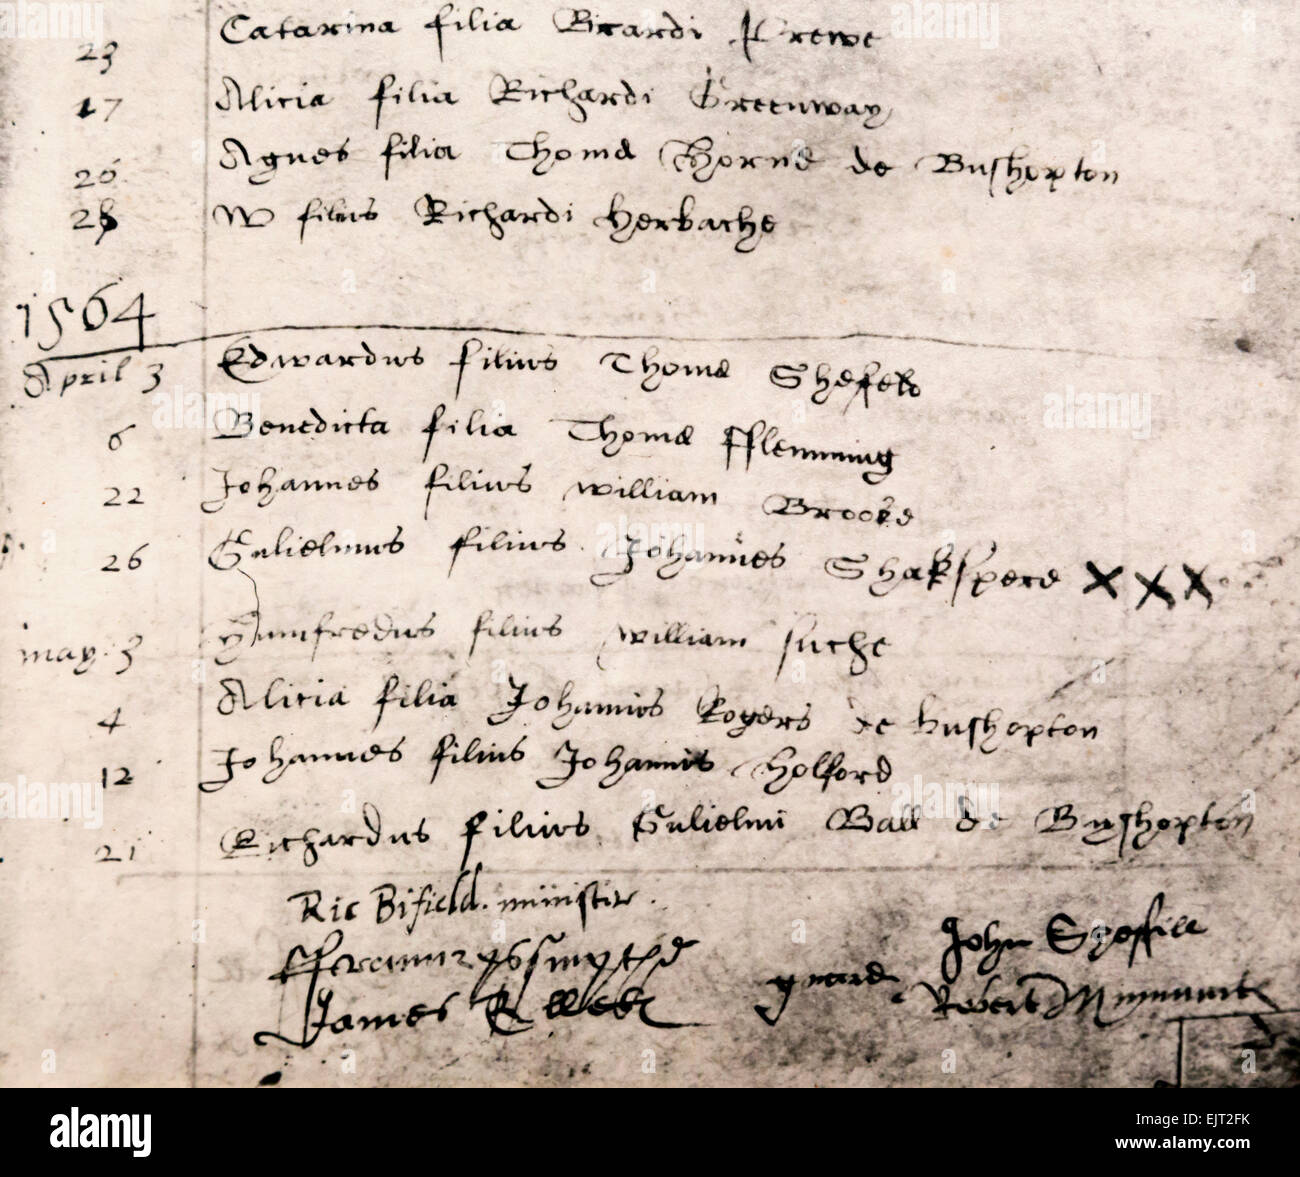 23 Catarina filia Ricardi
17 Alicia filia Richardi Greenway
26 Agnes filia Thomæ Thorne de Bushopton
28 W filius Richardi Herbache
1564
April 3 Edwardus filius Thomæ Shefeld
6 Benedicta filia Thomæ fflemming
22 Johannes filius william Brooke
26 Gulielmus filius Johannes Shakspere XXX
may 3 Humfredus filius william suche
4 Alicia filia Johannis Rogers de bushopton
12 Johannes filius Johannis Holford
21 Richardus filius Gulielmi Ball de Byshopton
Ric Bifield. minister.
John
James Robert
alamy
EJT2FK
www.alamy.com